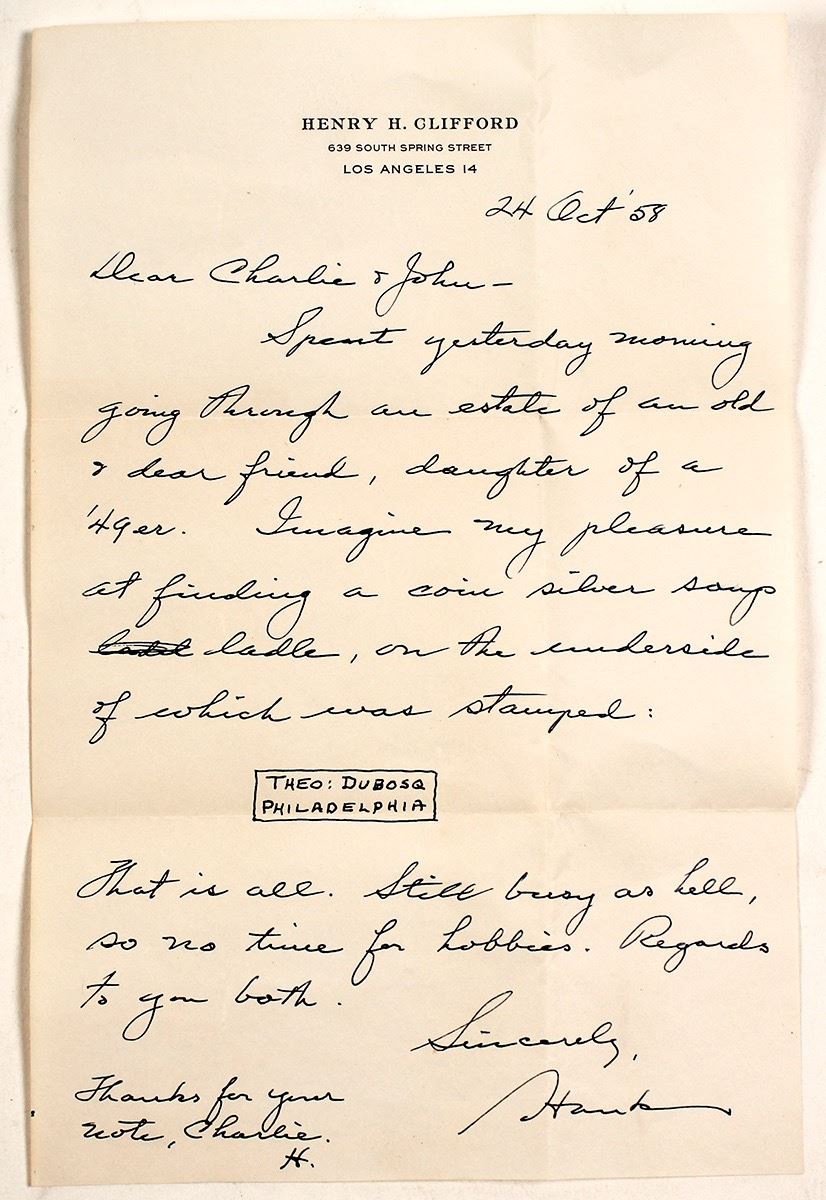 HENRY H. CLIFFORD
639 SOUTH SPRING STREET
LOS ANGELES 14
24 Oct '58
Dear Charlie & John —
Spent yesterday morning
going through an estate of an old
& dear friend, daughter of a
'49er. Imagine my pleasure
at finding a coin silver soup
ladle, on the underside
of which was stamped:
THEO: DUBOSQ
PHILADELPHIA
That is all. Still busy as hell,
so no time for hobbies. Regards
to you both.
Sincerely,
Hank
Thanks for your
note, Charlie.
H.